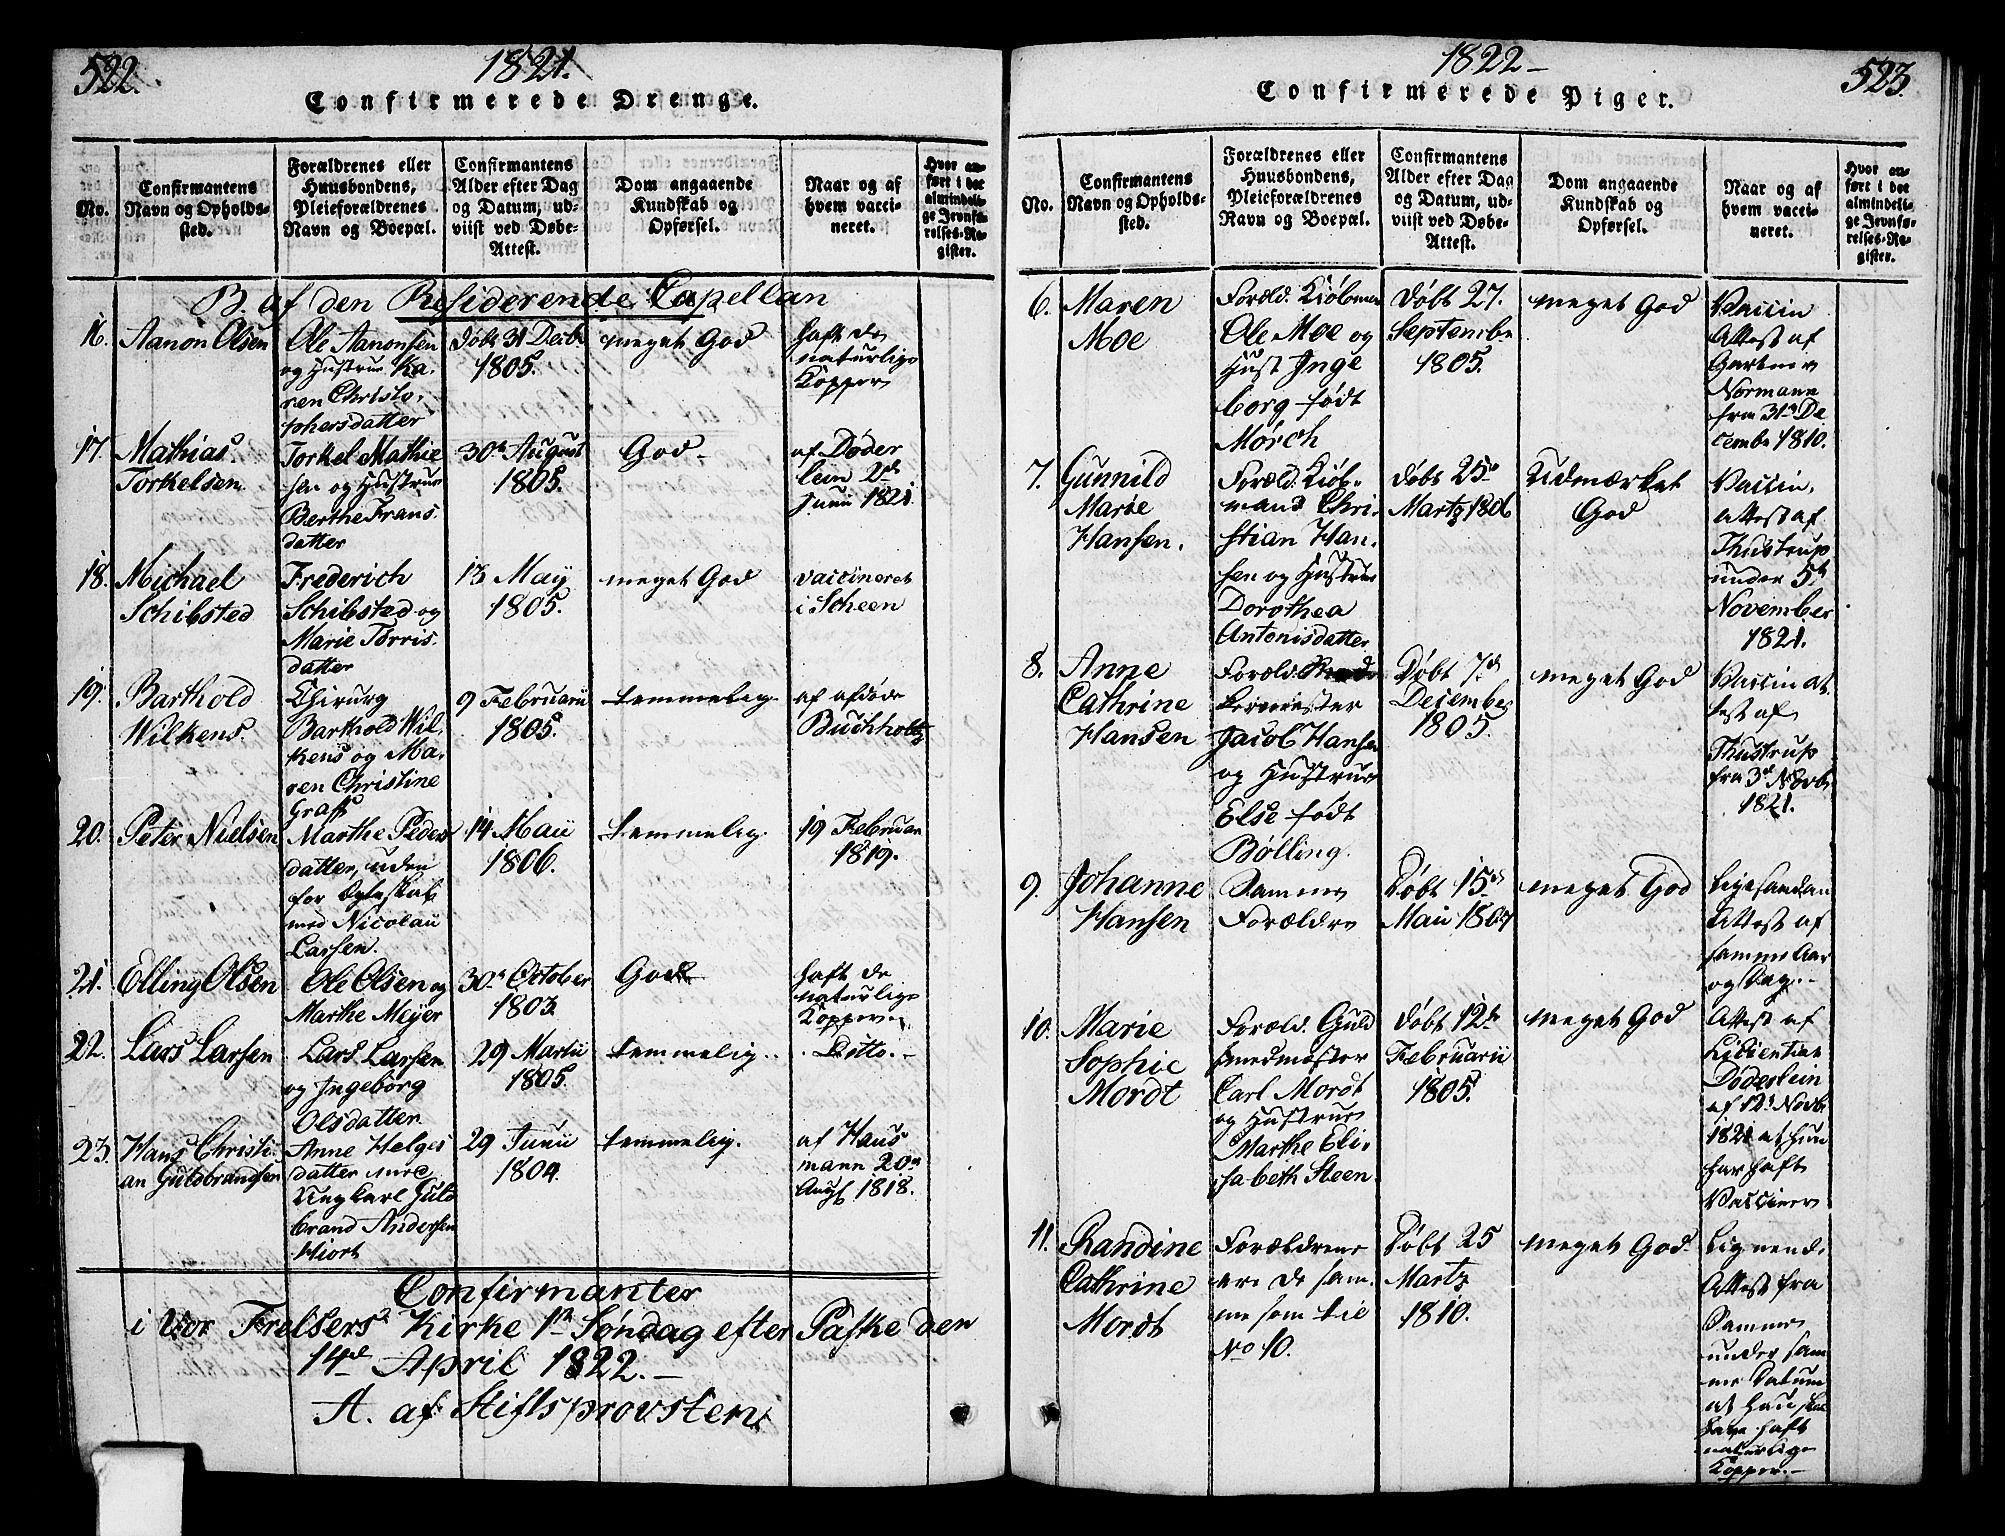 522.
1821.
Confirmerede Drenge.
No.
Confirmantens
Navn og Opholds-
sted.
Forældrenes eller
Huusbondens,
Pleieforældrenes
Navn og Boepæl.
Confirmantens
Alder efter Dag
og Datum, ud-
viist ved Døbe-
Attest.
Dom angaaende
Kundskab og
Opførsel.
Naar og af
hvem vacci-
neret.
Hvor an-
ført i det
almindeli-
ge Jevnfø-
relses-Re-
gister.
B. af den Residerende Capellan
16.
Aanon Olsen
Ole Aanonsen
og Hustrue Ka-
ren Christo-
phersdatter
Døbt 31 Decbr
1805.
meget God
haft de
naturlige
Kopper
17.
Mathias
Torkelsen
Torkel Mathie
sen og Hustrue
Berthe Frans
datter
30te August
1805.
God
af Døder
lein 2de
Junii 1821
18.
Michael
Schibsted
Frederich
Schibsted og
Marie Torris
datter
13 May
1805.
meget God
vaccineret
i Scheen
19.
Barthold
Wilkens.
Chirurg
Barthold Wil-
kens og Ma-
ren Christine
Graff
9 Februarii
1805.
temmelig
af afdøde
Buchholtz
20.
Peter Nielsen
Marthe Peders
datter, uden
for Ægteskab
med Nicolaii
Larsen.
14 Maii
1806.
temmelig
19 Februar
1819.
21.
Elling Olsen
Ole Olsen og
Marthe Meyer
30te October
1803.
God
haft de
naturlige
Kopper
22.
Lars Larsen
Lars Larsen
og Ingeborg
Olsdatter
29 Martii
1805.
temmelig
Ditto.
23.
Hans Christi-
an Guldbrandsen
Anne Helges
datter med
Ungkarl Guld
brand Andersen
Hiort
29 Junii
1804.
temmelig.
af Haus
mann 20de
Augst 1818.
Confirmanter
i Vor Frelsers Kirke 1ste Søndag efter Paaske den
14de April 1822.
A. af Stiftsprovsten
1822
523.
Confirmerede Piger.
No.
Confirmantens
Navn og Opholds-
sted.
Forældrenes eller
Huusbondens,
Pleieforældrenes
Navn og Boepæl.
Confirmantens
Alder efter Dag
og Datum, ud-
viist ved Døbe-
Attest.
Dom angaaende
Kundskab og
Opførsel.
Naar og af
hvem vacci-
neret.
Hvor an-
ført i det
almindeli-
ge Jevnfø-
relses-Re-
gister.
6.
Maren
Moe
Foræld. Kiøbmen
Ole Moe og
Hust Inge
borg født
Mørch
Døbt 27.
Septembr
1805.
meget God
Vaccin
Attest af
Gartner
Normann
fra 31te De
cembr 1810.
7.
Gunnild
Marie
Hansen.
Foræld. Kiøb-
mand Chri-
stian Han-
sen og Hustrue
Dorothea
Antonisdatter
Døbt 25de
Martz 1806
Udmærket
God
Vaccin.
attest af
Thustrup
under 5te
November
1821.
8.
Anne
Cathrine
Hansen
Foræld.
Jacob Hansen
og Hustrue
Else født
Bølling.
Døbt 7de
December
1805.
meget God
Vaccin at
test af
Thustrup
fra 3de Novbr
1821.
9.
Johanne
Hansen
Samme
Forældre
Døbt 15de
Maii
meget God
Ligesaadan
Attest af
samme Aar
og Dag.
10.
Marie
Sophie
Mordt
Foræld. Guld
smedmester
Carl Mordt
og Hustrue
Marthe Eli-
sabeth Steen
Døbt 12te
Februarii
1805.
meget God
Attest af
Licentiat
Døderlein
af 12te Novbr
1821 at hun
har haft
Vacciner
11.
Randine
Cathrine
Mordt
Forældrene
ere de sam-
me som til
No 10.
Døbt 25
Martz
1810.
meget God
Lignende
Attest fra
Samme
under sam-
me Datum
at hun skal
have haft
naturlige
Kopper.